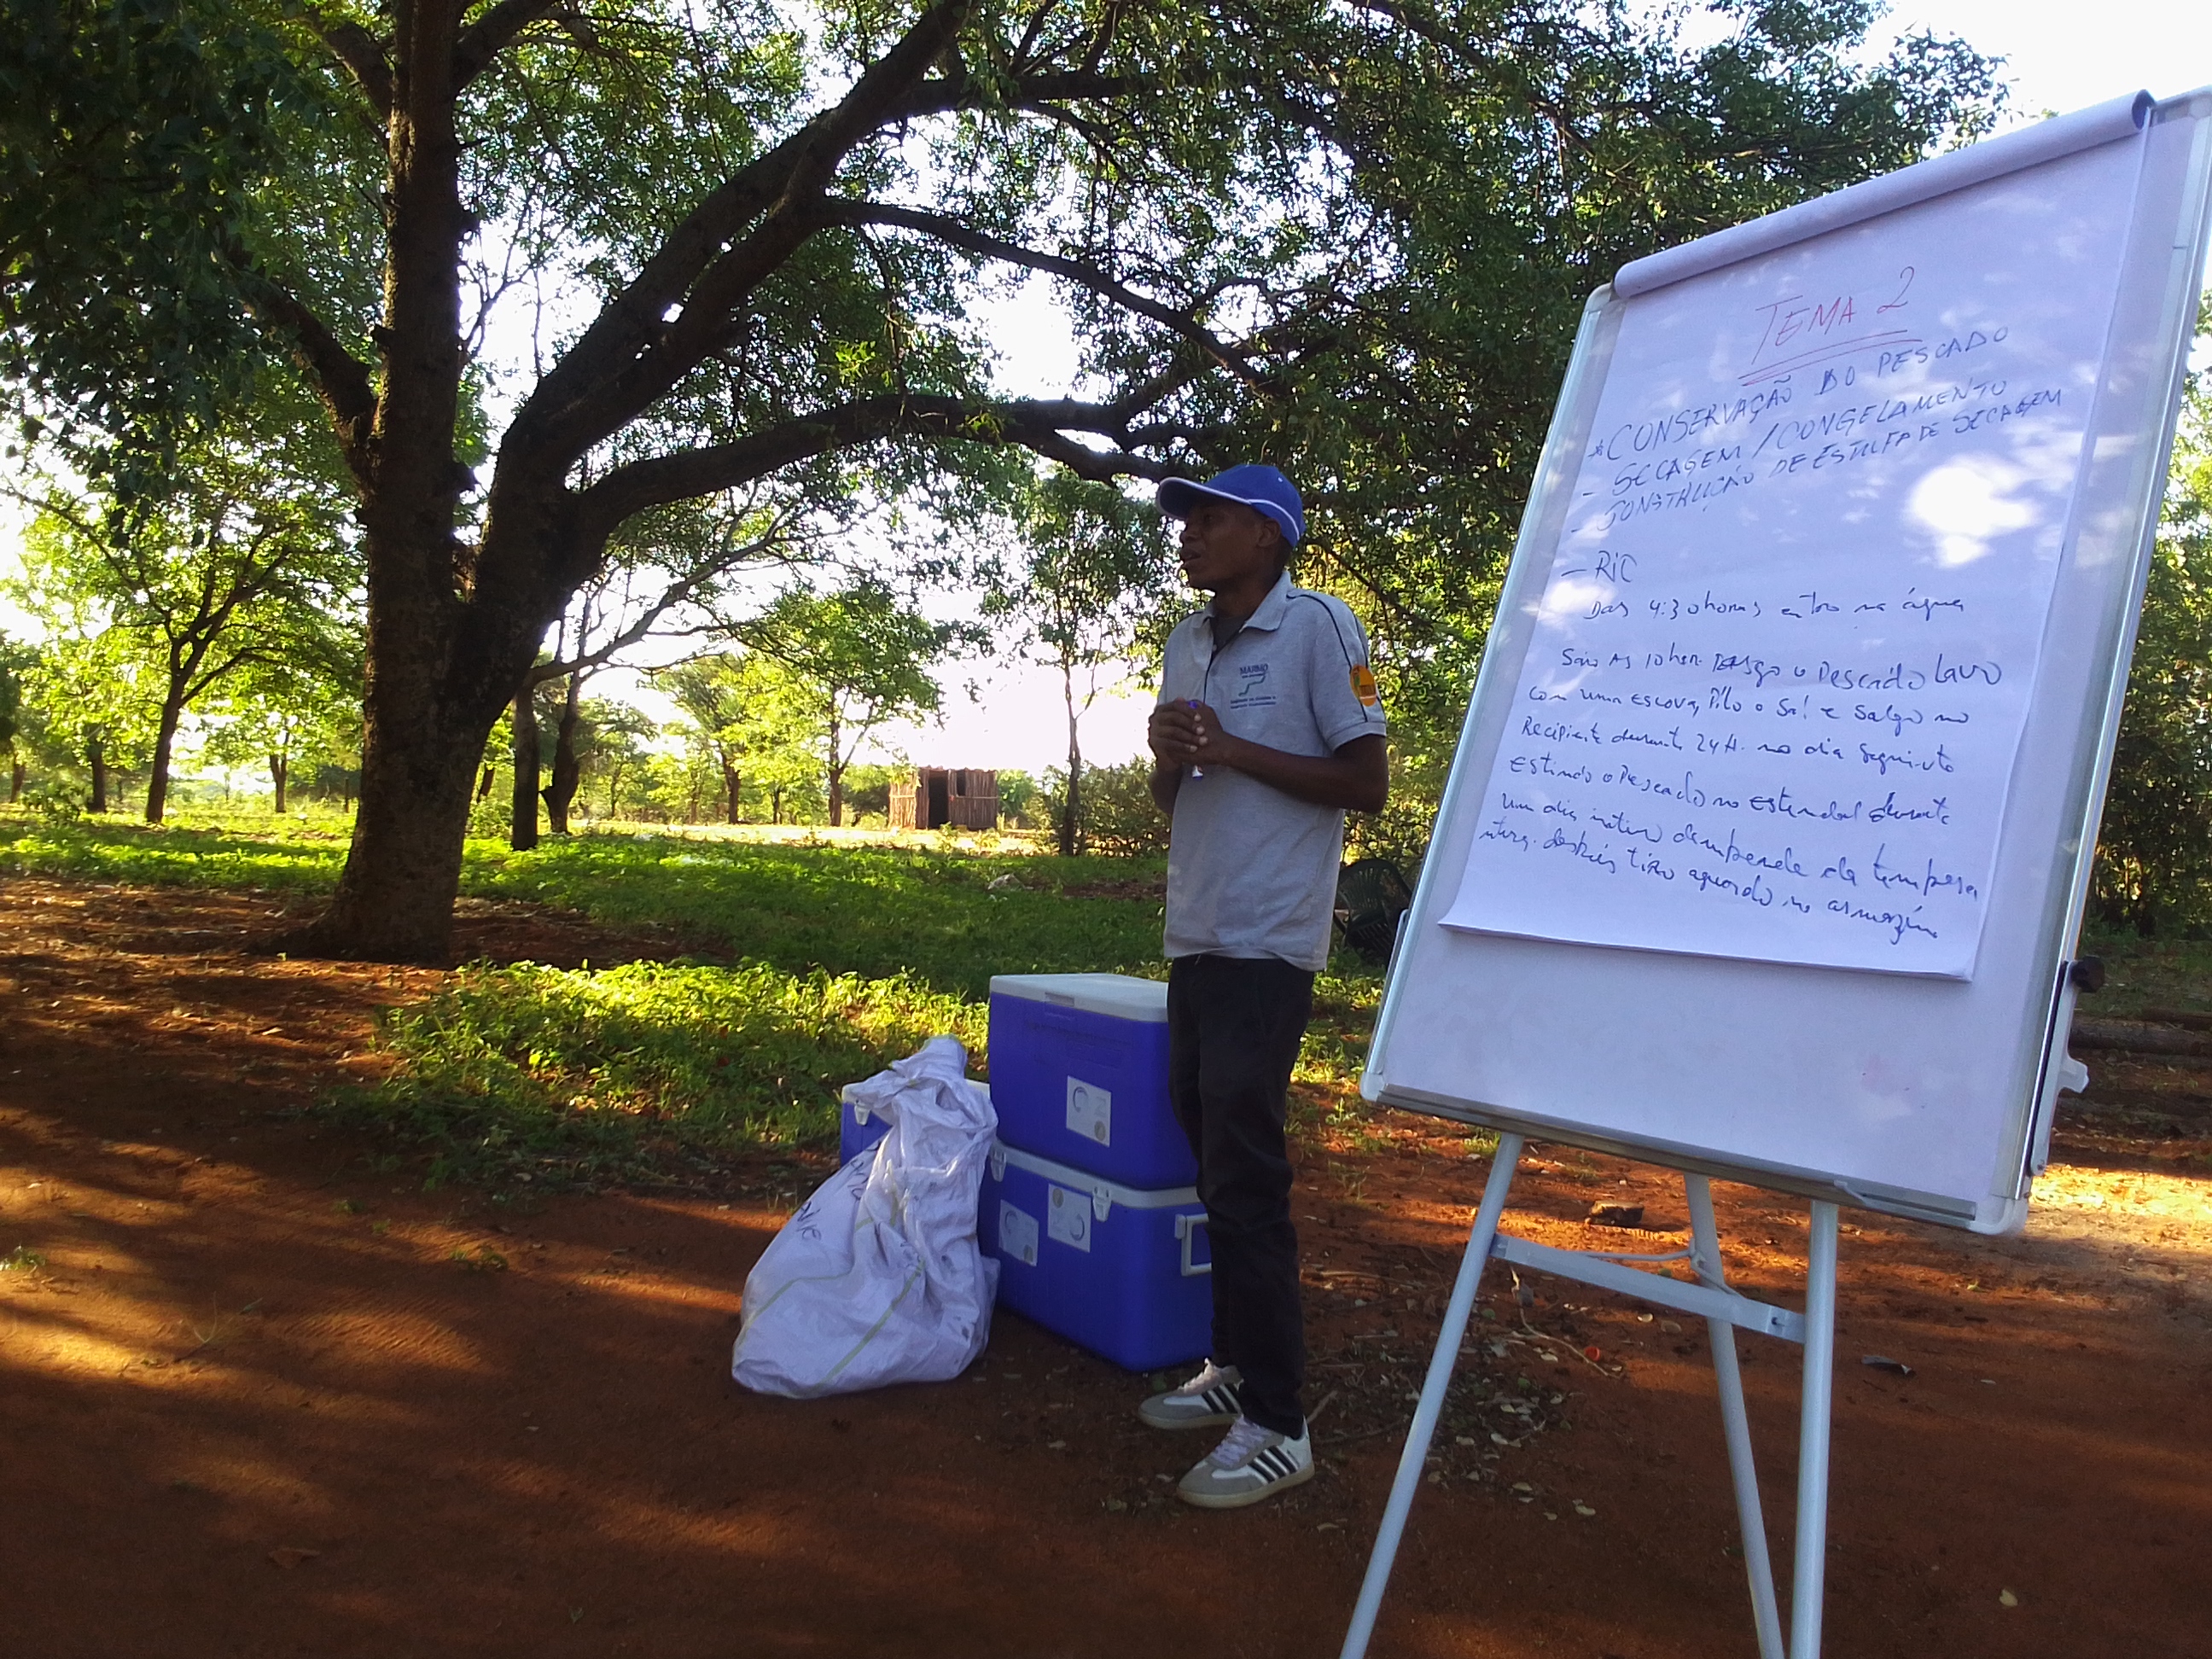 TEMA 2
* CONSERVAÇÃO DO PESCADO
- SECAGEM / CONGELAMENTO
- CONSTRUÇÃO DE ESTUFA DE SECAGEM
- RIC
Das 4:30 horas entro na água
Saio As 10hor. Rasgo o Pescado lavo
com uma escova, Pilo o Sal e Salgo no
Recipiente durante 24H. no dia Seguinte
Estindo o Pescado no Estendal durante
um dia inteiro dempende da tempera
tura. despois tiro aguardo no armazém
MARMO